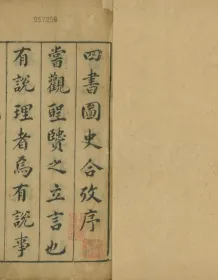 四書圖史合攷序
嘗觀聖賢之立言也
有說理者焉有說事